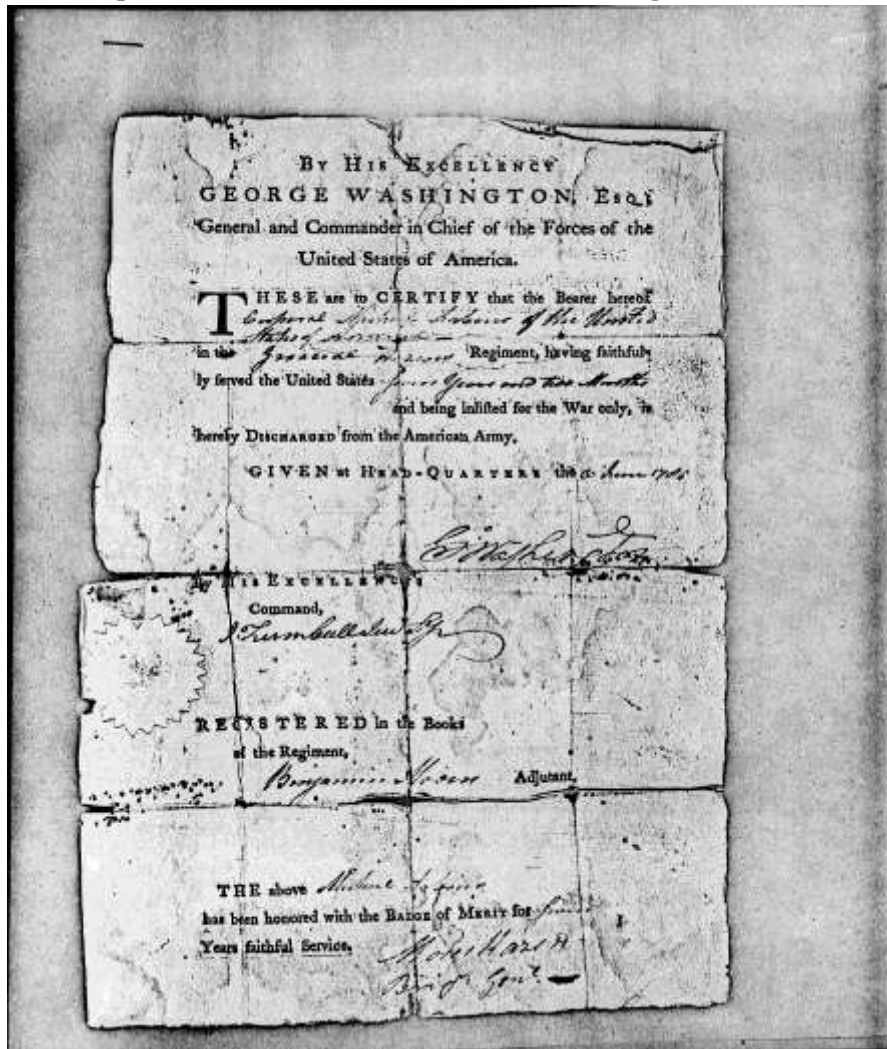 By His Excellency
GEORGE WASHINGTON, Esq;
General and Commander in Chief of the Forces of the
United States of America.
THESE are to CERTIFY that the Bearer hereof
Corporal of the United
States of
in the General Regiment, having faithful-
ly served the United States Years and two Months
and being inlisted for the War only, is
hereby Discharged from the American Army.
GIVEN at Head-Quarters the June
G Washington
By His Excellency's
Command,
J Trumbull Jun
REGISTERED in the Books
of the Regiment,
Benjamin Adjutant,
THE above
has been honored with the Badge of Merit for
Years faithful Service.
Moses Hazen
Brig Genl